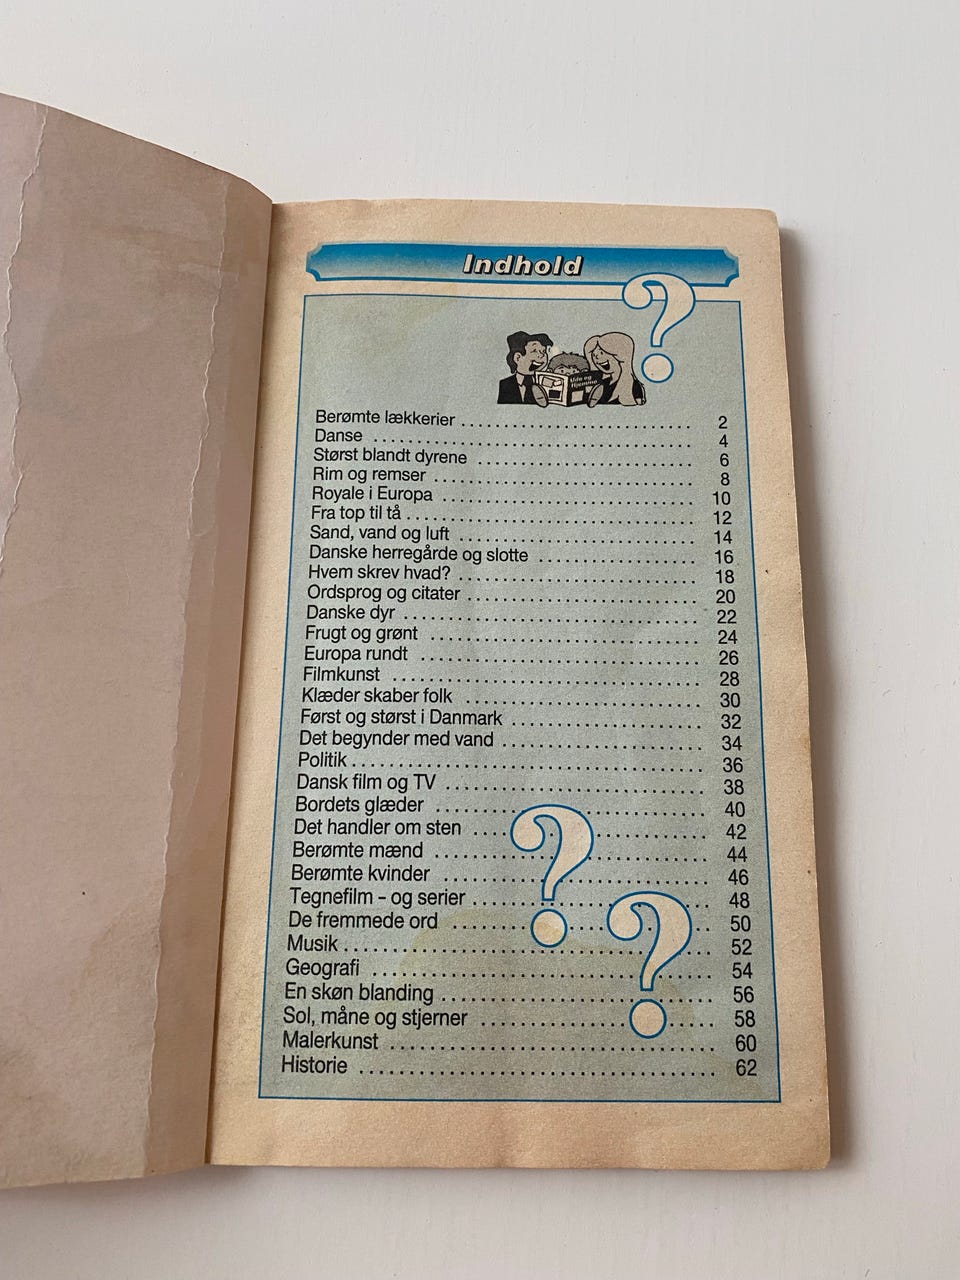 Indhold
Ude og
Hjemme
Berømte lækkerier ............................ 2
Danse ...................................... 4
Størst blandt dyrene .......................... 6
Rim og remser ............................... 8
Royale i Europa .............................. 10
Fra top til tå ................................... 12
Sand, vand og luft ............................. 14
Danske herregårde og slotte .................... 16
Hvem skrev hvad? ............................. 18
Ordsprog og citater ............................ 20
Danske dyr .................................... 22
Frugt og grønt ................................ 24
Europa rundt .................................. 26
Filmkunst ..................................... 28
Klæder skaber folk ............................ 30
Først og størst i Danmark ....................... 32
Det begynder med vand ........................ 34
Politik ......................................... 36
Dansk film og TV ............................... 38
Bordets glæder ................................ 40
Det handler om sten ............................ 42
Berømte mænd ................................. 44
Berømte kvinder ................................ 46
Tegnefilm - og serier ............................ 48
De fremmede ord ............................... 50
Musik .......................................... 52
Geografi ....................................... 54
En skøn blanding ................................ 56
Sol, måne og stjerner ............................ 58
Malerkunst ...................................... 60
Historie ......................................... 62